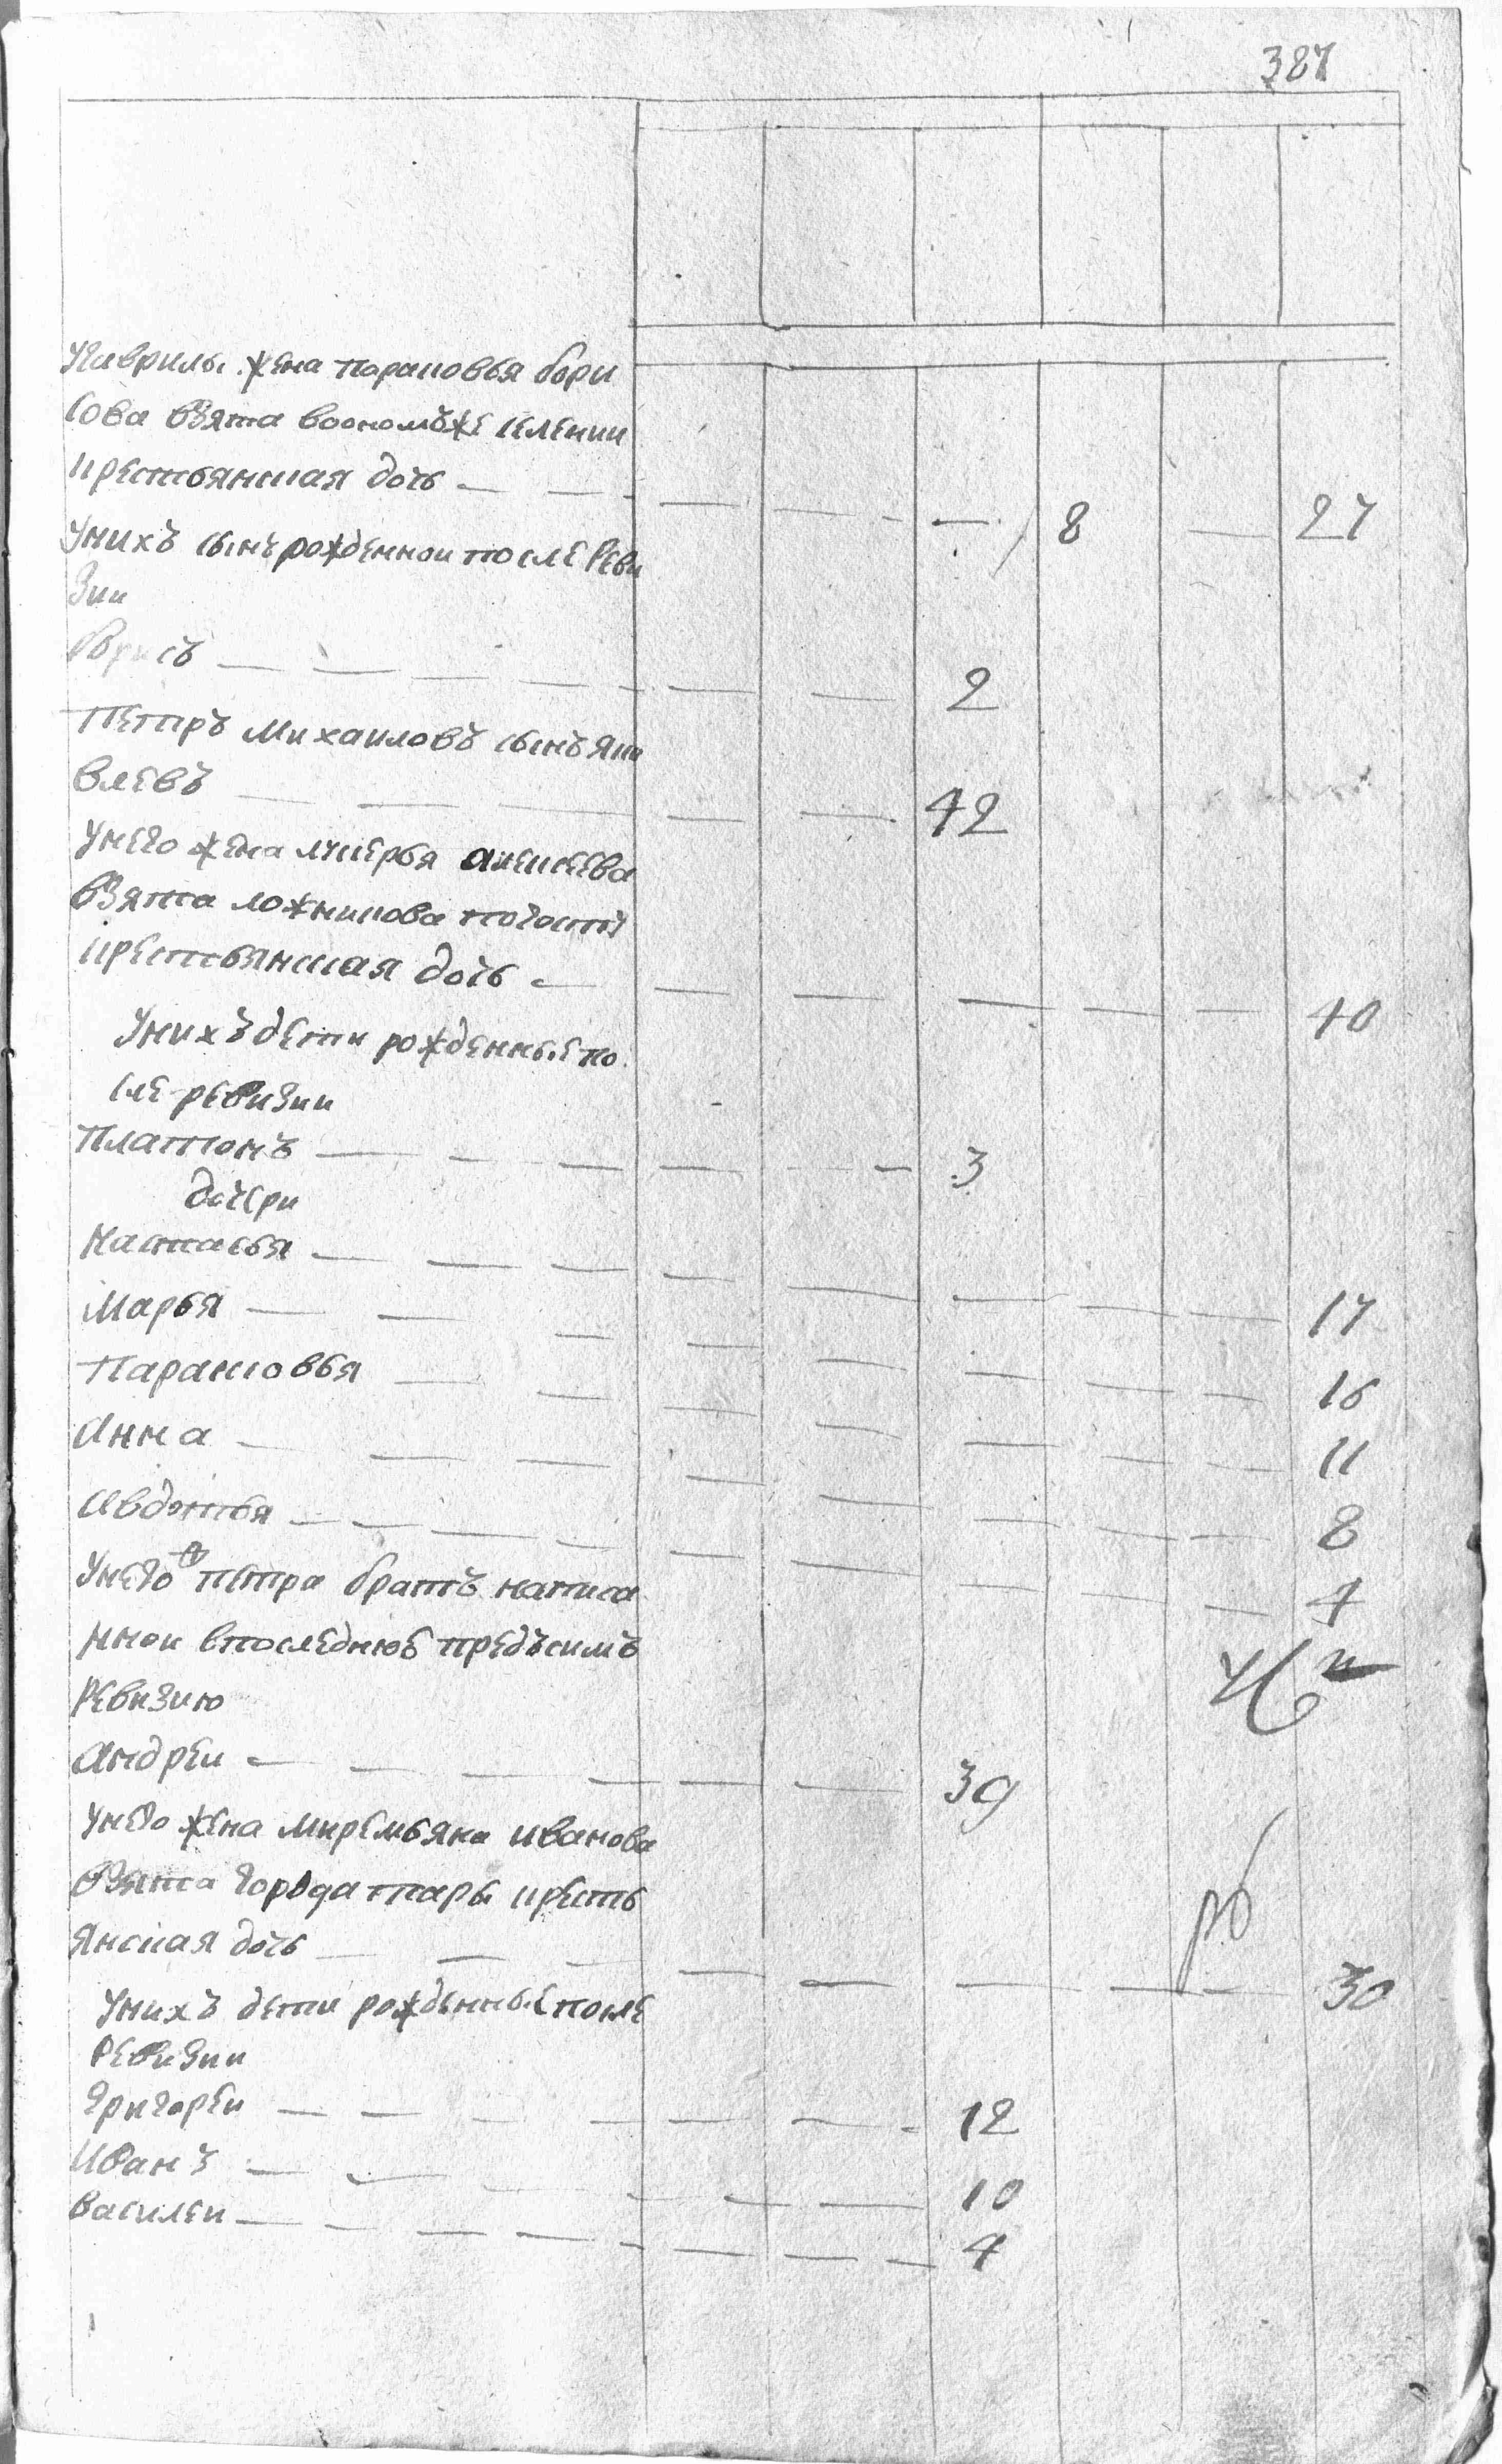 387
Угаврилы жена параковья бори
сова взята воономъже селении
крестьянская дочь 8 27
Унихъ сынъ рожденнои после Реви
зии
борисъ 2
Петръ Михаиловъ сынъ яко
влевъ 42
Унего жена лукерья алексеева
взята ложникова погоста
крестьянская дочь 40
Унихъ дети рожденные по
сле ревизии
Платонъ 3
дочери
Настасья 17
Марья 16
Параковья 11
Анна 8
Авдотья 4
Унего петра братъ написа
ннои впоследнюе предъсимъ
Ревизию
Андреи 39
Унего жена миремьяна иванова
взята города тары кресть
янская дочь 30
Унихъ дети рожденные после
Ревизии
Григореи 12
Иванъ 10
Василеи 4